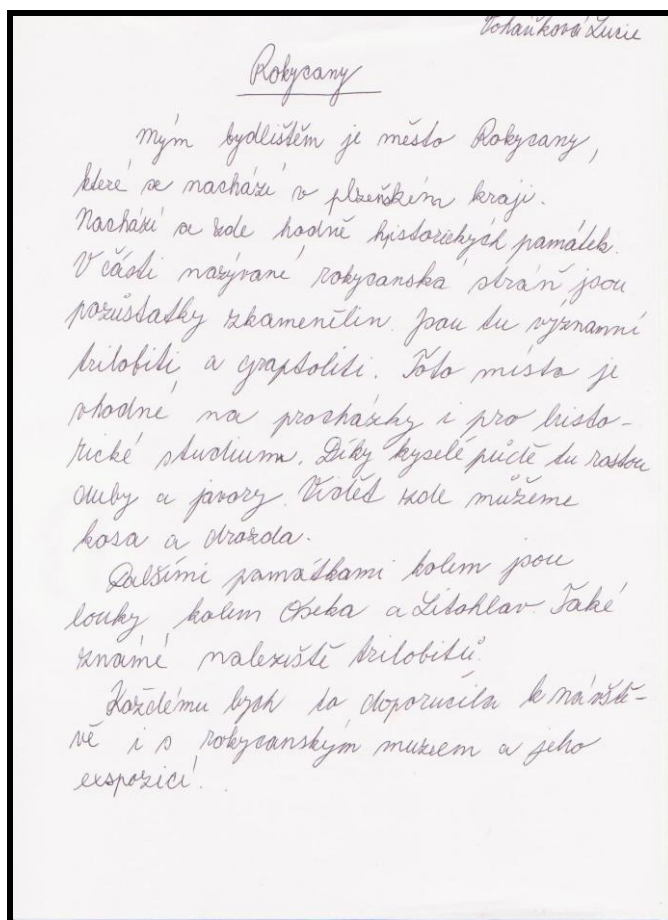 Voháňková Lucie
Rokycany
Mým bydlištěm je město Rokycany,
které se nachází v plzeňském kraji.
Nachází se zde hodně historických památek.
V části nazývané rokycanská stráň jsou
pozůstatky zkamenělin. Jsou tu významní
trilobiti a graptoliti. Toto místo je
vhodné na procházky i pro histo-
rické studium. Díky kyselé půdě tu rostou
duby a javory. Vidět zde můžeme
kosa a drozda.
Dalšími památkami kolem jsou
louky kolem Oseka a Litohlav. Také
známé naleziště trilobitů.
Každému bych to doporučila k návště-
vě i s rokycanským muzem a jeho
exspozicí.